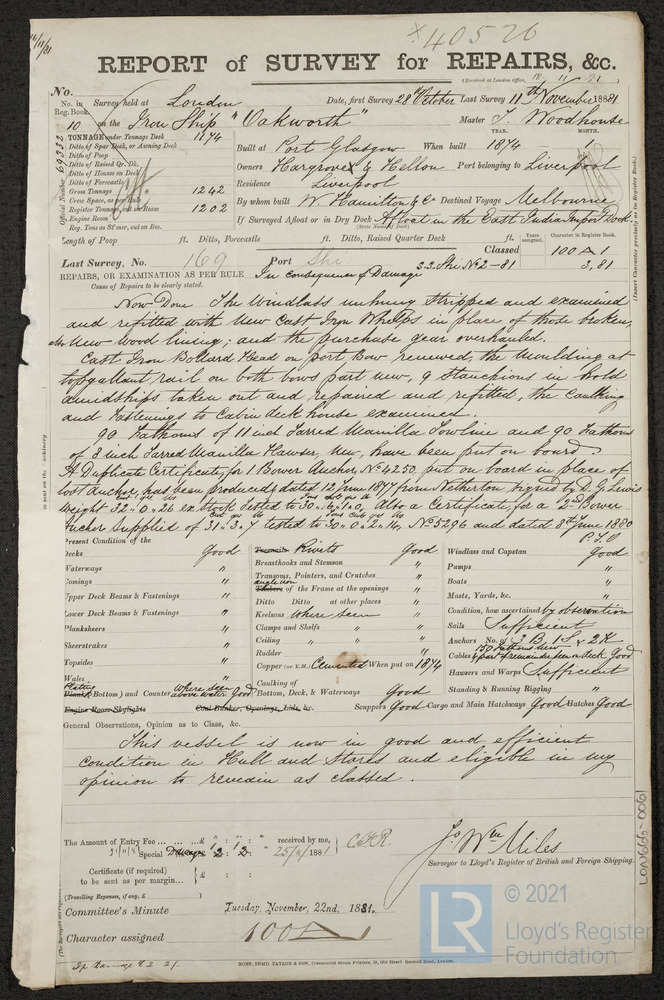 16/11/81
× 40576
REPORT of SURVEY for REPAIRS, &c.
(Received at London Office, 18 11 81 )
No.
No. in Survey held at London Date, first Survey 28th October Last Survey 11th November 1881
Reg. Book.
10 on the Iron Ship "Oakworth" Master J. Woodhouse
TONNAGE under Tonnage Deck 1174
Ditto of Spar Deck, or Awning Deck
Ditto of Poop
Ditto of Raised Qr. Dk.
Ditto of Houses on Deck
Ditto of Forecastle
Gross Tonnage 1242
Crew Space, as per Rule
Register Tonnage, cut on Beam 1202
Engine Room
Reg. Tons as St'mer, cut on Bm.
Official Number 69332
YEAR. MONTH.
Built at Port Glasgow When built 1874
Owners Hargroves & Hellon Port belonging to Liverpool
Residence Liverpool
By whom built W. Hamilton & Co Destined Voyage Melbourne
If Surveyed Afloat or in Dry Dock Afloat in the East India Import Dock.
(State Name of Dock)
Length of Poop ft. Ditto, Forecastle ft. Ditto, Raised Quarter Deck ft.
Years assigned. Character in Register Book.
Classed 100 A 1
3,81
(Insert Character precisely as in Register Book.)
Last Survey, No. 169 Port Shi. S.S. Shi No 2-81
REPAIRS, OR EXAMINATION AS PER RULE In consequence of Damage
Cause of Repairs to be clearly stated.
Now Done The Windlass unhung stripped and examined
and refitted with New Cast Iron Whelps in place of those broken,
New wood lining; and the purchase gear overhauled.
Cast Iron Bollard Head on port bow renewed, the moulding at
topgallant rail on both bows part new, 9 stanchions in hold
amidships taken out and repaired and refitted, the caulking
and fastenings to Cabin deck house examined.
90 Fathoms of 11 inch Tarred Manilla Towline and 90 Fathoms
of 8 inch Tarred Manilla Hawser, New, have been put on board.
A Duplicate Certificate, for 1 Bower Anchor, No 4250, put on board in place of
lost Anchor, has been produced, dated 12 June 1877 from Netherton signed by D. G. Lewis
weight 32"0"26 ex stock tested to 30"6"1"0, Also a Certificate for a 2nd Bower
Anchor supplied of 31"3"7 tested to 30"0"2"14, No 5296 and dated 8th June 1880
P.T.O
Present Condition of the
Decks Good
Waterways "
Comings "
Upper Deck Beams & Fastenings "
Lower Deck Beams & Fastenings "
Planksheers "
Sheerstrakes "
Topsides "
Wales "
Plating (Bottom) and Counter where seen above water Good
Engine Room Skylights Coal Bunker, Openings, Lids, &c.
Treenails Rivets Good
Breasthooks and Stemson "
Transoms, Pointers, and Crutches "
angle iron
Timbers of the Frame at the openings "
Ditto Ditto at other places "
Keelsons where seen "
Clamps and Shelfs "
Ceiling "
Rudder "
Copper (or Y.M.) Cemented When put on 1874
Caulking of
Bottom, Deck, & Waterways Good
Scuppers Good Cargo and Main Hatchways Good Hatches Good
Windlass and Capstan Good
Pumps "
Boats "
Masts, Yards, &c. "
Condition, how ascertained by observation
Sails Sufficient
Anchors No. of 3 B, 1 S & 2 K
150 Fathoms New
Cables & part of remainder seen on deck Good
Hawsers and Warps Sufficient
Standing & Running Rigging "
General Observations, Opinion as to Class, &c.
This vessel is now in good and efficient
condition in Hull and Stores and eligible in my
opinion to remain as classed.
The Amount of Entry Fee ... ... £ " : " : " received by me,
Special Damage 2 : 2 : " 25/11/1881
Certificate (if required)
to be sent as per margin... } £ : :
(Travelling Expenses, if any, £ )
Jo Wm Miles
Surveyor to Lloyd's Register of British and Foreign Shipping.
Committee's Minute Tuesday, November, 22nd. 1881.
Character assigned 100 A 1
ROBT. EDMD. TAYLOR & SON, Commercial Steam Printers, 19, Old Street Goswell Road, London.
LON666-0061
LR
© 2021
Lloyd's Register
Foundation